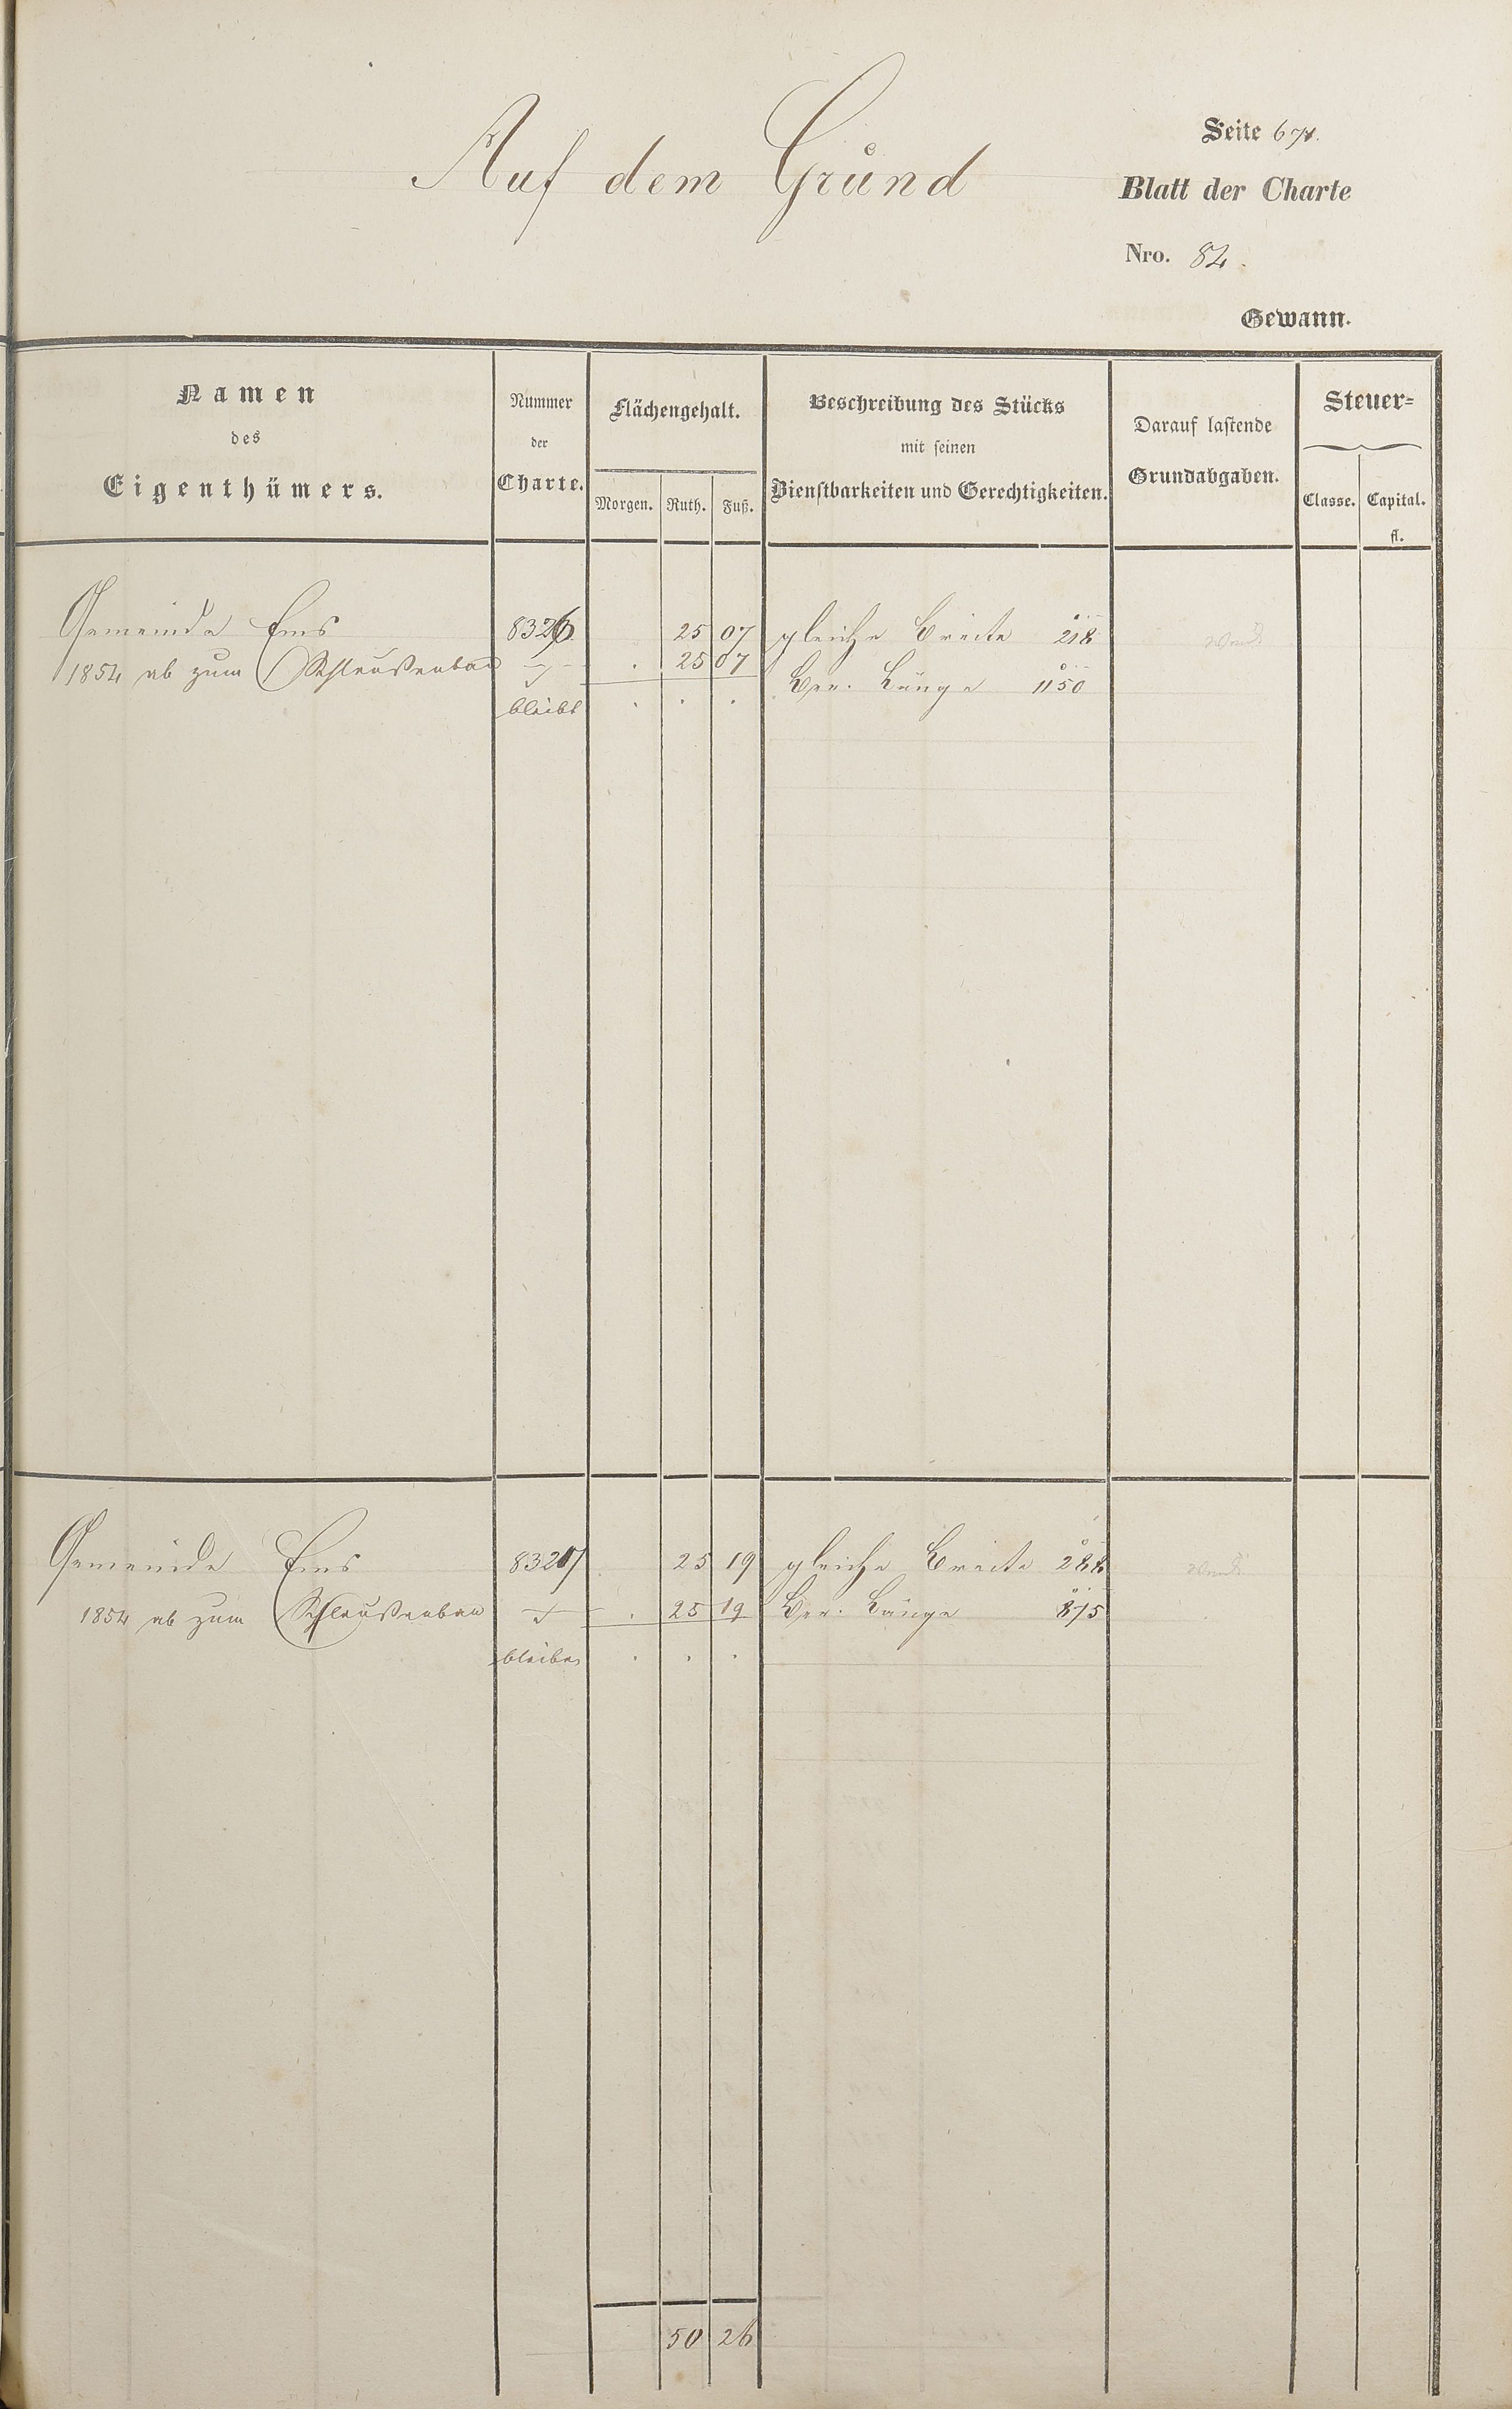 Auf dem Grund
Seite 674.
Blatt der Charte
Nro. 84.
Gewann.
Namen
des
Eigenthümers.
Nummer
der
Charte.
Flächengehalt.
Morgen. Ruth. Fuß.
Beschreibung des Stücks
mit seinen
Dienstbarkeiten und Gerechtigkeiten.
Darauf lastende
Grundabgaben.
Steuer=
Classe. Capital.
fl.
Gemeinde Ems 8326 25 07 gleiche Breite 218
1854 ab zum Schleußenbau . 25 07
Ver. Länge 1150
bleibt . . .
Gemeinde Ems 8327 25 19 gleiche Breite 288
1854 ab zum Schleußenbau . 25 19 Ver. Länge 875
bleibt . . .
50 26